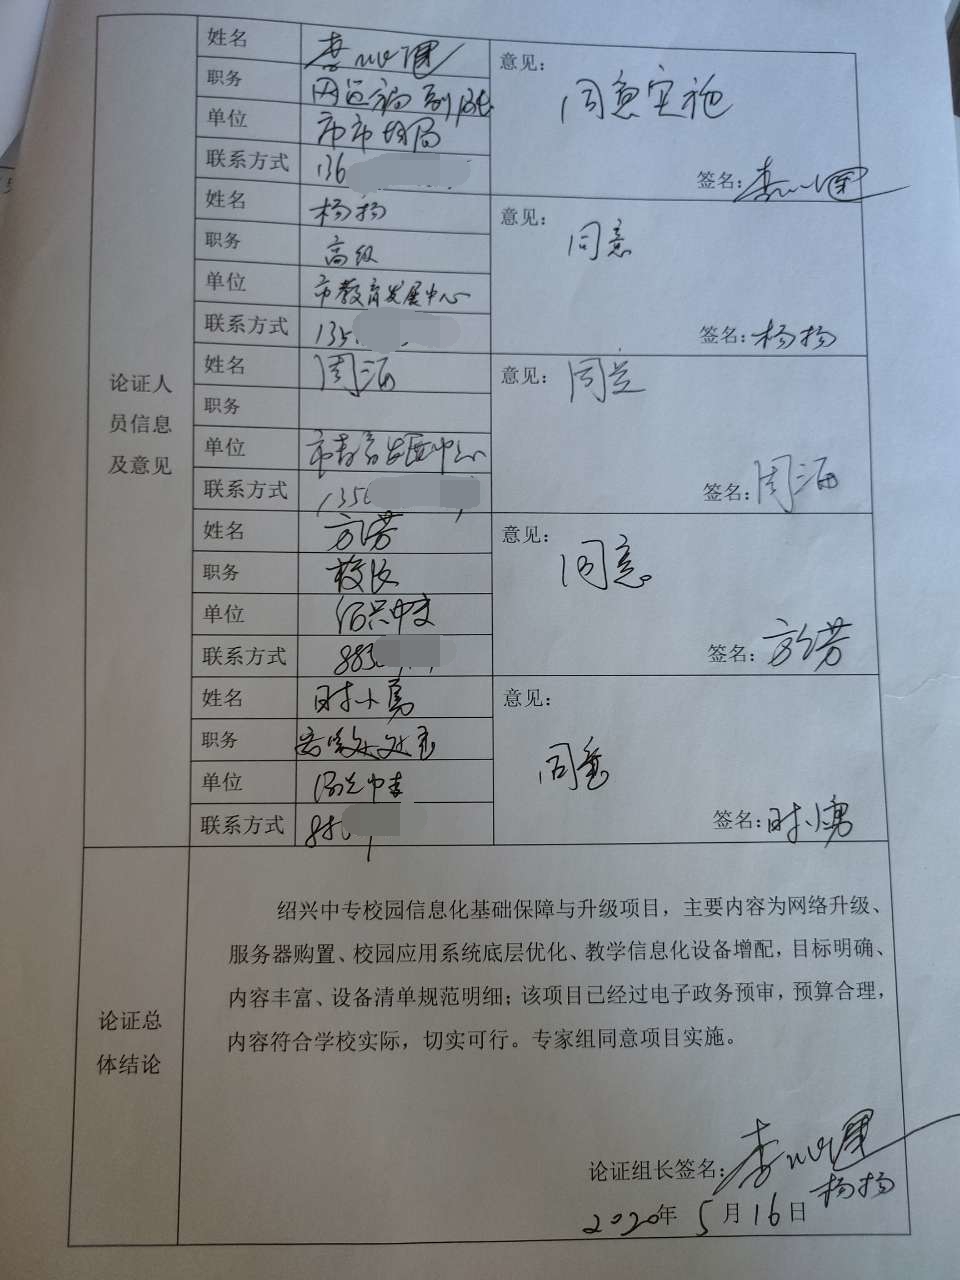 姓名
职务
单位 市市场局
联系方式 136
意见：
同意实施
签名：
姓名 杨扬
职务 高级
单位 市教育发展中心
联系方式 135
意见：
同意
签名：杨扬
姓名 周海
职务
单位 市教育发展中心
联系方式 1356
意见：
同意
签名：周海
姓名 方芳
职务 校长
单位 绍兴中专
联系方式 883
意见：
同意
签名：方芳
姓名 时小勇
职务
单位 绍兴中专
联系方式 88
意见：
同意
签名：时小勇
论证人
员信息
及意见
论证总
体结论
绍兴中专校园信息化基础保障与升级项目，主要内容为网络升级、
服务器购置、校园应用系统底层优化、教学信息化设备增配，目标明确、
内容丰富、设备清单规范明细；该项目已经过电子政务预审，预算合理，
内容符合学校实际，切实可行。专家组同意项目实施。
论证组长签名：
杨扬
2020年 5 月 16 日